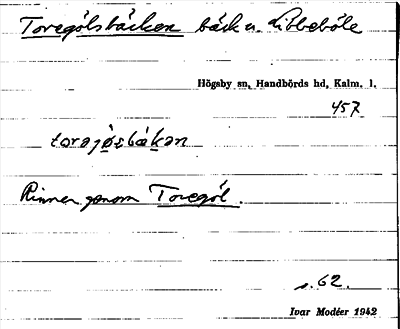 Toregölsbäcken bäck u. Libbeböle
Högsby sn, Handbörds hd, Kalm. l.
457
torəjø̱sbäkən
Rinner genom Toregöl.
s. 62.
Ivar Modéer 1942